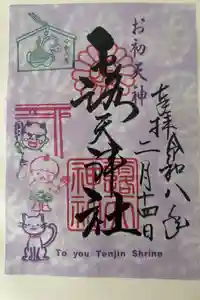 奉拝 令和八年
二月十四日
お初天神
露天神社
To you Tenjin Shrine